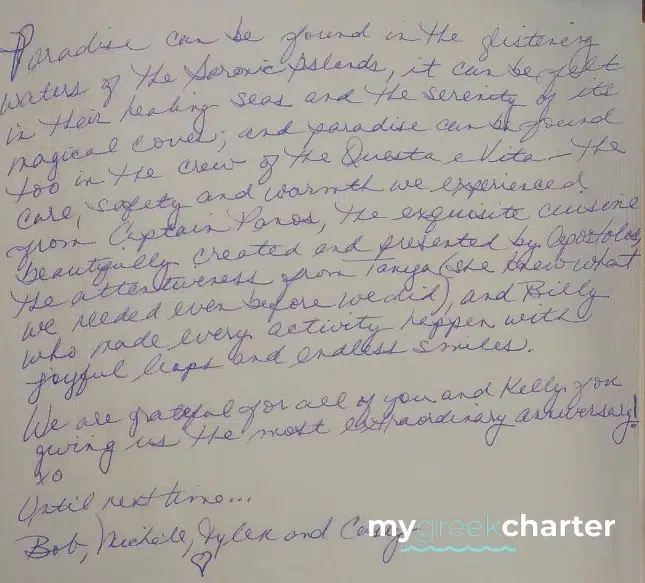 Paradise can be found in the glistening
waters of the Saronic Islands, it can be felt
in their healing seas and the serenity of its
magical coves; and paradise can be found
too in the crew of the Questa e Vita – the
care, safety and warmth we experienced
from Captain Panos, the exquisite cuisine
beautifully created and presented by Apostolos,
the attentiveness from Tanya (she knew what
we needed even before we did), and Billy
who made every activity happen with
joyful leaps and endless smiles.
We are grateful for all of you and Kelly for
giving us the most extraordinary anniversary!
xo
Until next time...
Bob, Michele, Tyler and
mygreekcharter